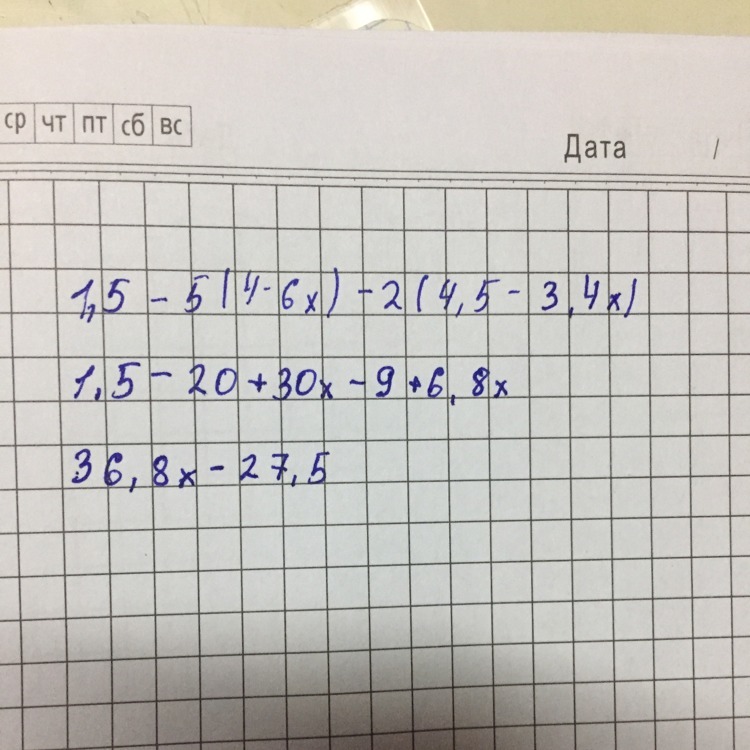 ср чт пт сб вс
Дата /
1,5 - 5(4-6x) - 2(4,5 - 3,4x)
1,5 - 20 + 30x - 9 + 6,8x
36,8x - 27,5